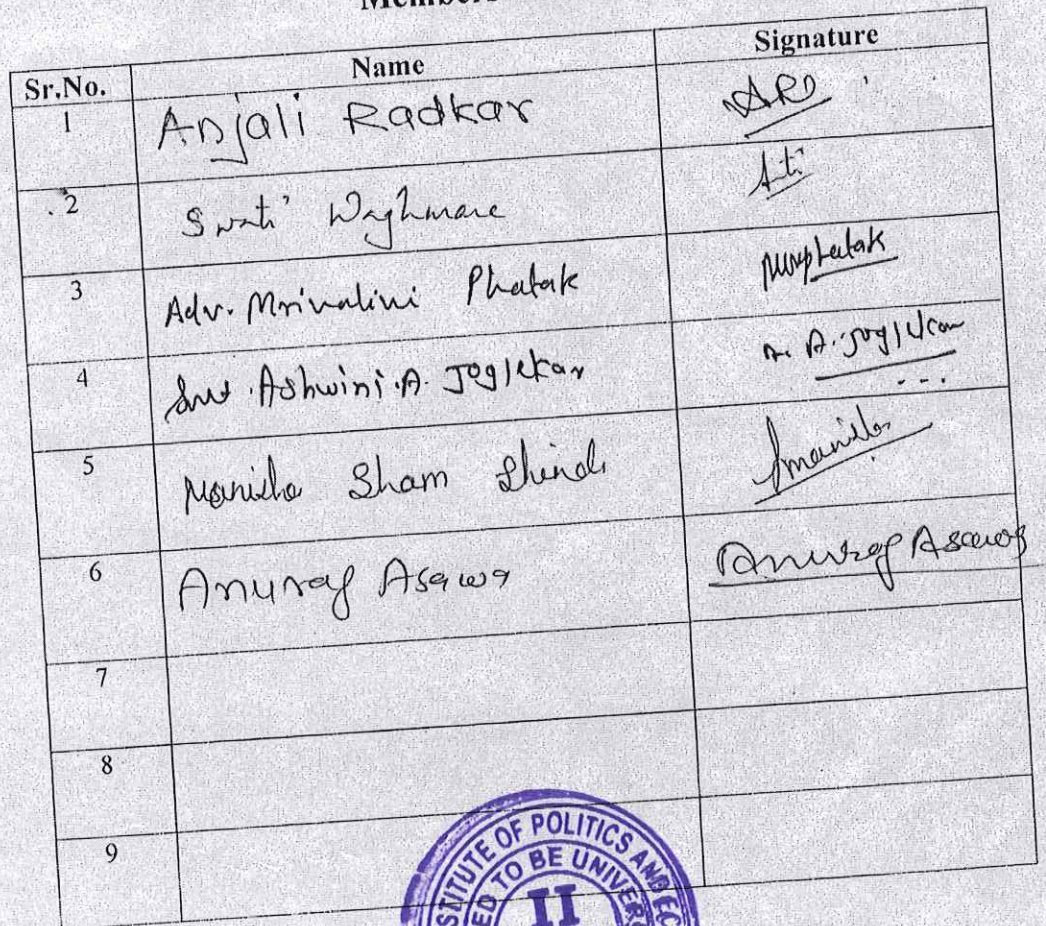 Sr.No. Name Signature
1 Anjali Radkar ARD
2 Swati Waghmare
3 Adv. Mrinalini Phatak
4 Ashwini.A. Joglekar A. Joglekar
5 Manisha Sham Shinde
6 Anurag Asawa Anurag Asawa
7
8
9
OF POLITICS AND
TO BE
II